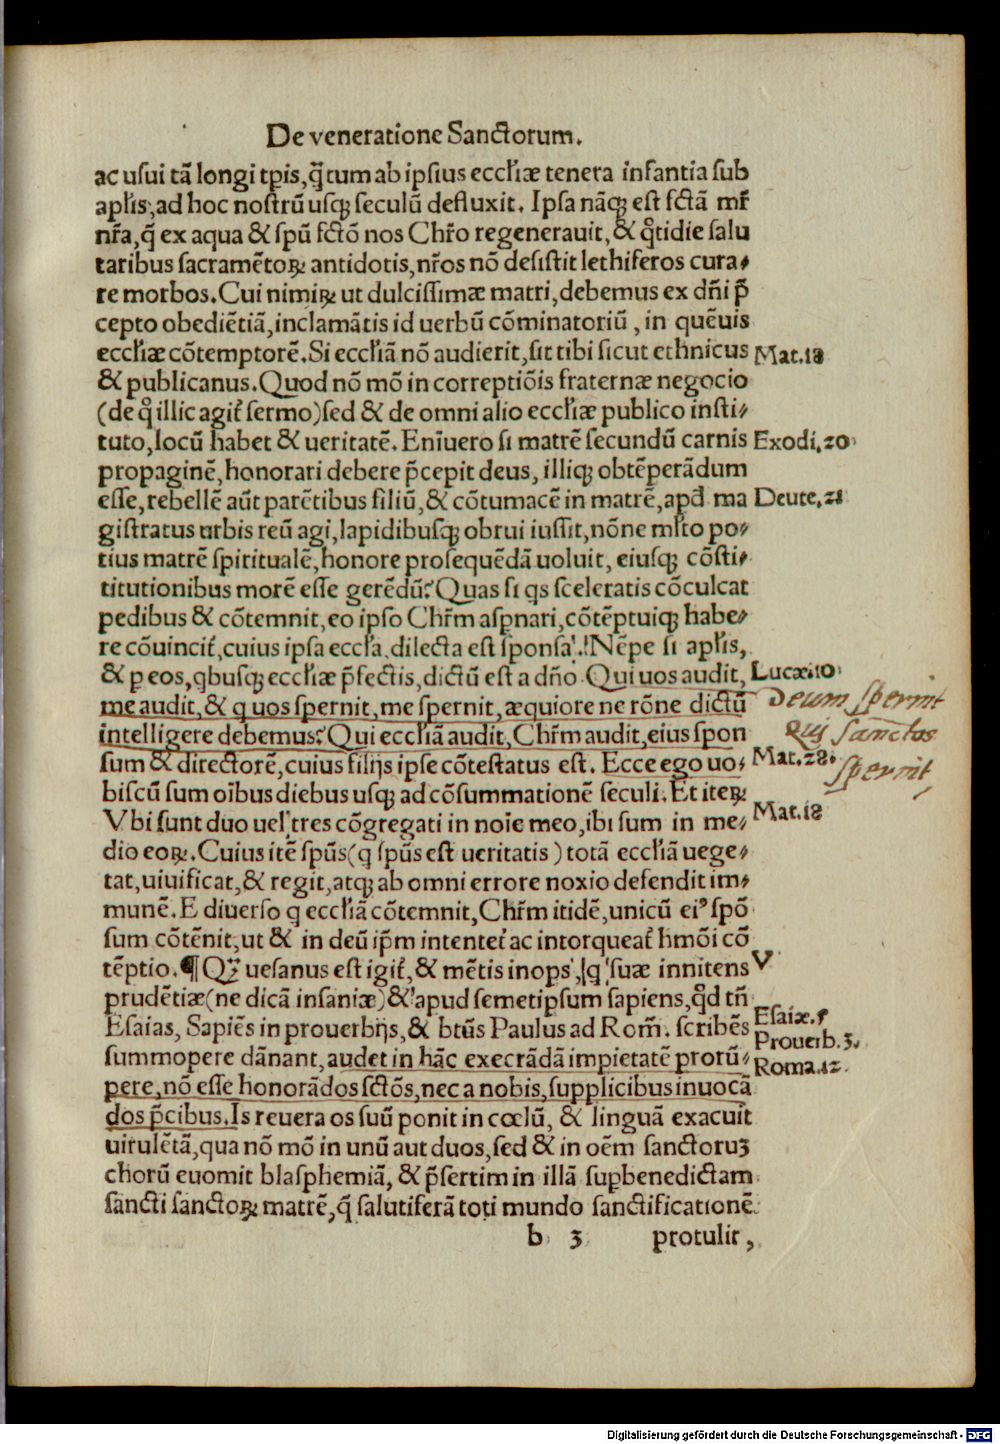 De veneratione Sanctorum.
ac usui tā longi tp̄is, q̄ cum ab ipsius eccl'iæ tenera infantia sub
apl'is, ad hoc nostrū usq; seculū defluxit. Ipsa nāq; est sctā mr̄
nr̄a, q̄ ex aqua & spū sctō nos Chr̄o regenerauit, & q̊tidie salu
taribus sacramētoꝝ antidotis, nr̄os nō desistit lethiferos cura⸗
re morbos. Cui nimiꝝ ut dulcissimæ matri, debemus ex dn̄i p̄
cepto obediētiā, inclamātis id uerbū cōminatoriū, in quēuis
eccl'iæ cōtemptorē. Si eccl'iā nō audierit, sit tibi sicut ethnicus
Mat.18
& publicanus. Quod nō mō in correptiōis fraternæ negocio
(de q̊ illic agit͛ sermo) sed & de omni alio eccl'iæ publico insti⸗
tuto, locū habet & ueritatē. Enīuero si matrē secundū carnis
Exodi.20
propaginē, honorari debere p̄cepit deus, illiq; obtēperādum
esse, rebellē aūt parētibus filiū, & cōtumacē in matrē, apd ma
Deute.21
gistratus urbis reū agi, lapidibusq; obrui iussit, nōne ml'to po⸗
tius matrē spiritualē, honore prosequēdā uoluit, eiusq; cōsti⸗
titutionibus morē esse gerēdū? Quas si qs sceleratis cōculcat
pedibus & cōtemnit, eo ipso Chr̄m asp̱nari, cōtēptuiq; habe⸗
re cōuincit͛, cuius ipsa eccl'ia dilecta est sponsa. Nēpe si apl'is,
& ꝑ eos, qbusq; eccl'iæ p̄fectis, dictū est a dn̄o Qui uos audit,
Lucæ.10
me audit, & q uos spernit, me spernit, æquiore ne rōne dictū
Deum spernit
intelligere debemus? Qui eccl'iā audit, Chr̄m audit, eius spon
Qui sanctos
sum & directorē, cuius filijs ipse cōtestatus est. Ecce ego uo⸗
Mat.28.
spernit
biscū sum oībus diebus usq; ad cōsummationē seculi. Et iteꝝ
Vbi sunt duo uel tres cōgregati in noīe meo, ibi sum in me⸗
Mat.18
dio eoꝝ. Cuius itē spūs (q spūs est ueritatis) totā eccl'iā uege⸗
tat, uiuificat, & regit, atq; ab omni errore noxio defendit im⸗
munē. E diuerso q eccl'iā cōtemnit, Chr̄m itidē, unicū eiꝰ spō
sum cōtēnit, ut & in deū ip̄m intentet͛ ac intorqueat͛ hmōi cō
tēptio. ¶ Qꝫ uesanus est igit͛, & mētis inops, q suæ innitens
V
prudētiæ (ne dicā insaniæ) & apud semetipsum sapiens, q̊d tn̄
Esaiæ.5
Esaias, Sapiēs in prouerbijs, & btūs Paulus ad Rom̄. scribēs
Prouerb.3.
summopere dānant, audet in hāc execrādā impietatē prorū⸗
Roma.12
pere, nō esse honorādos sctōs, nec a nobis, supplicibus inuocā
dos p̄cibus. Is reuera os suū ponit in cœlū, & linguā exacuit
uirulētā, qua nō mō in unū aut duos, sed & in oēm sanctoruꝫ
chorū euomit blasphemiā, & p̄sertim in illā suꝑbenedictam
sancti sanctoꝝ matrē, q̄ salutiferā toti mundo sanctificationē
b 3
protulit,
Digitalisierung gefördert durch die Deutsche Forschungsgemeinschaft - DFG